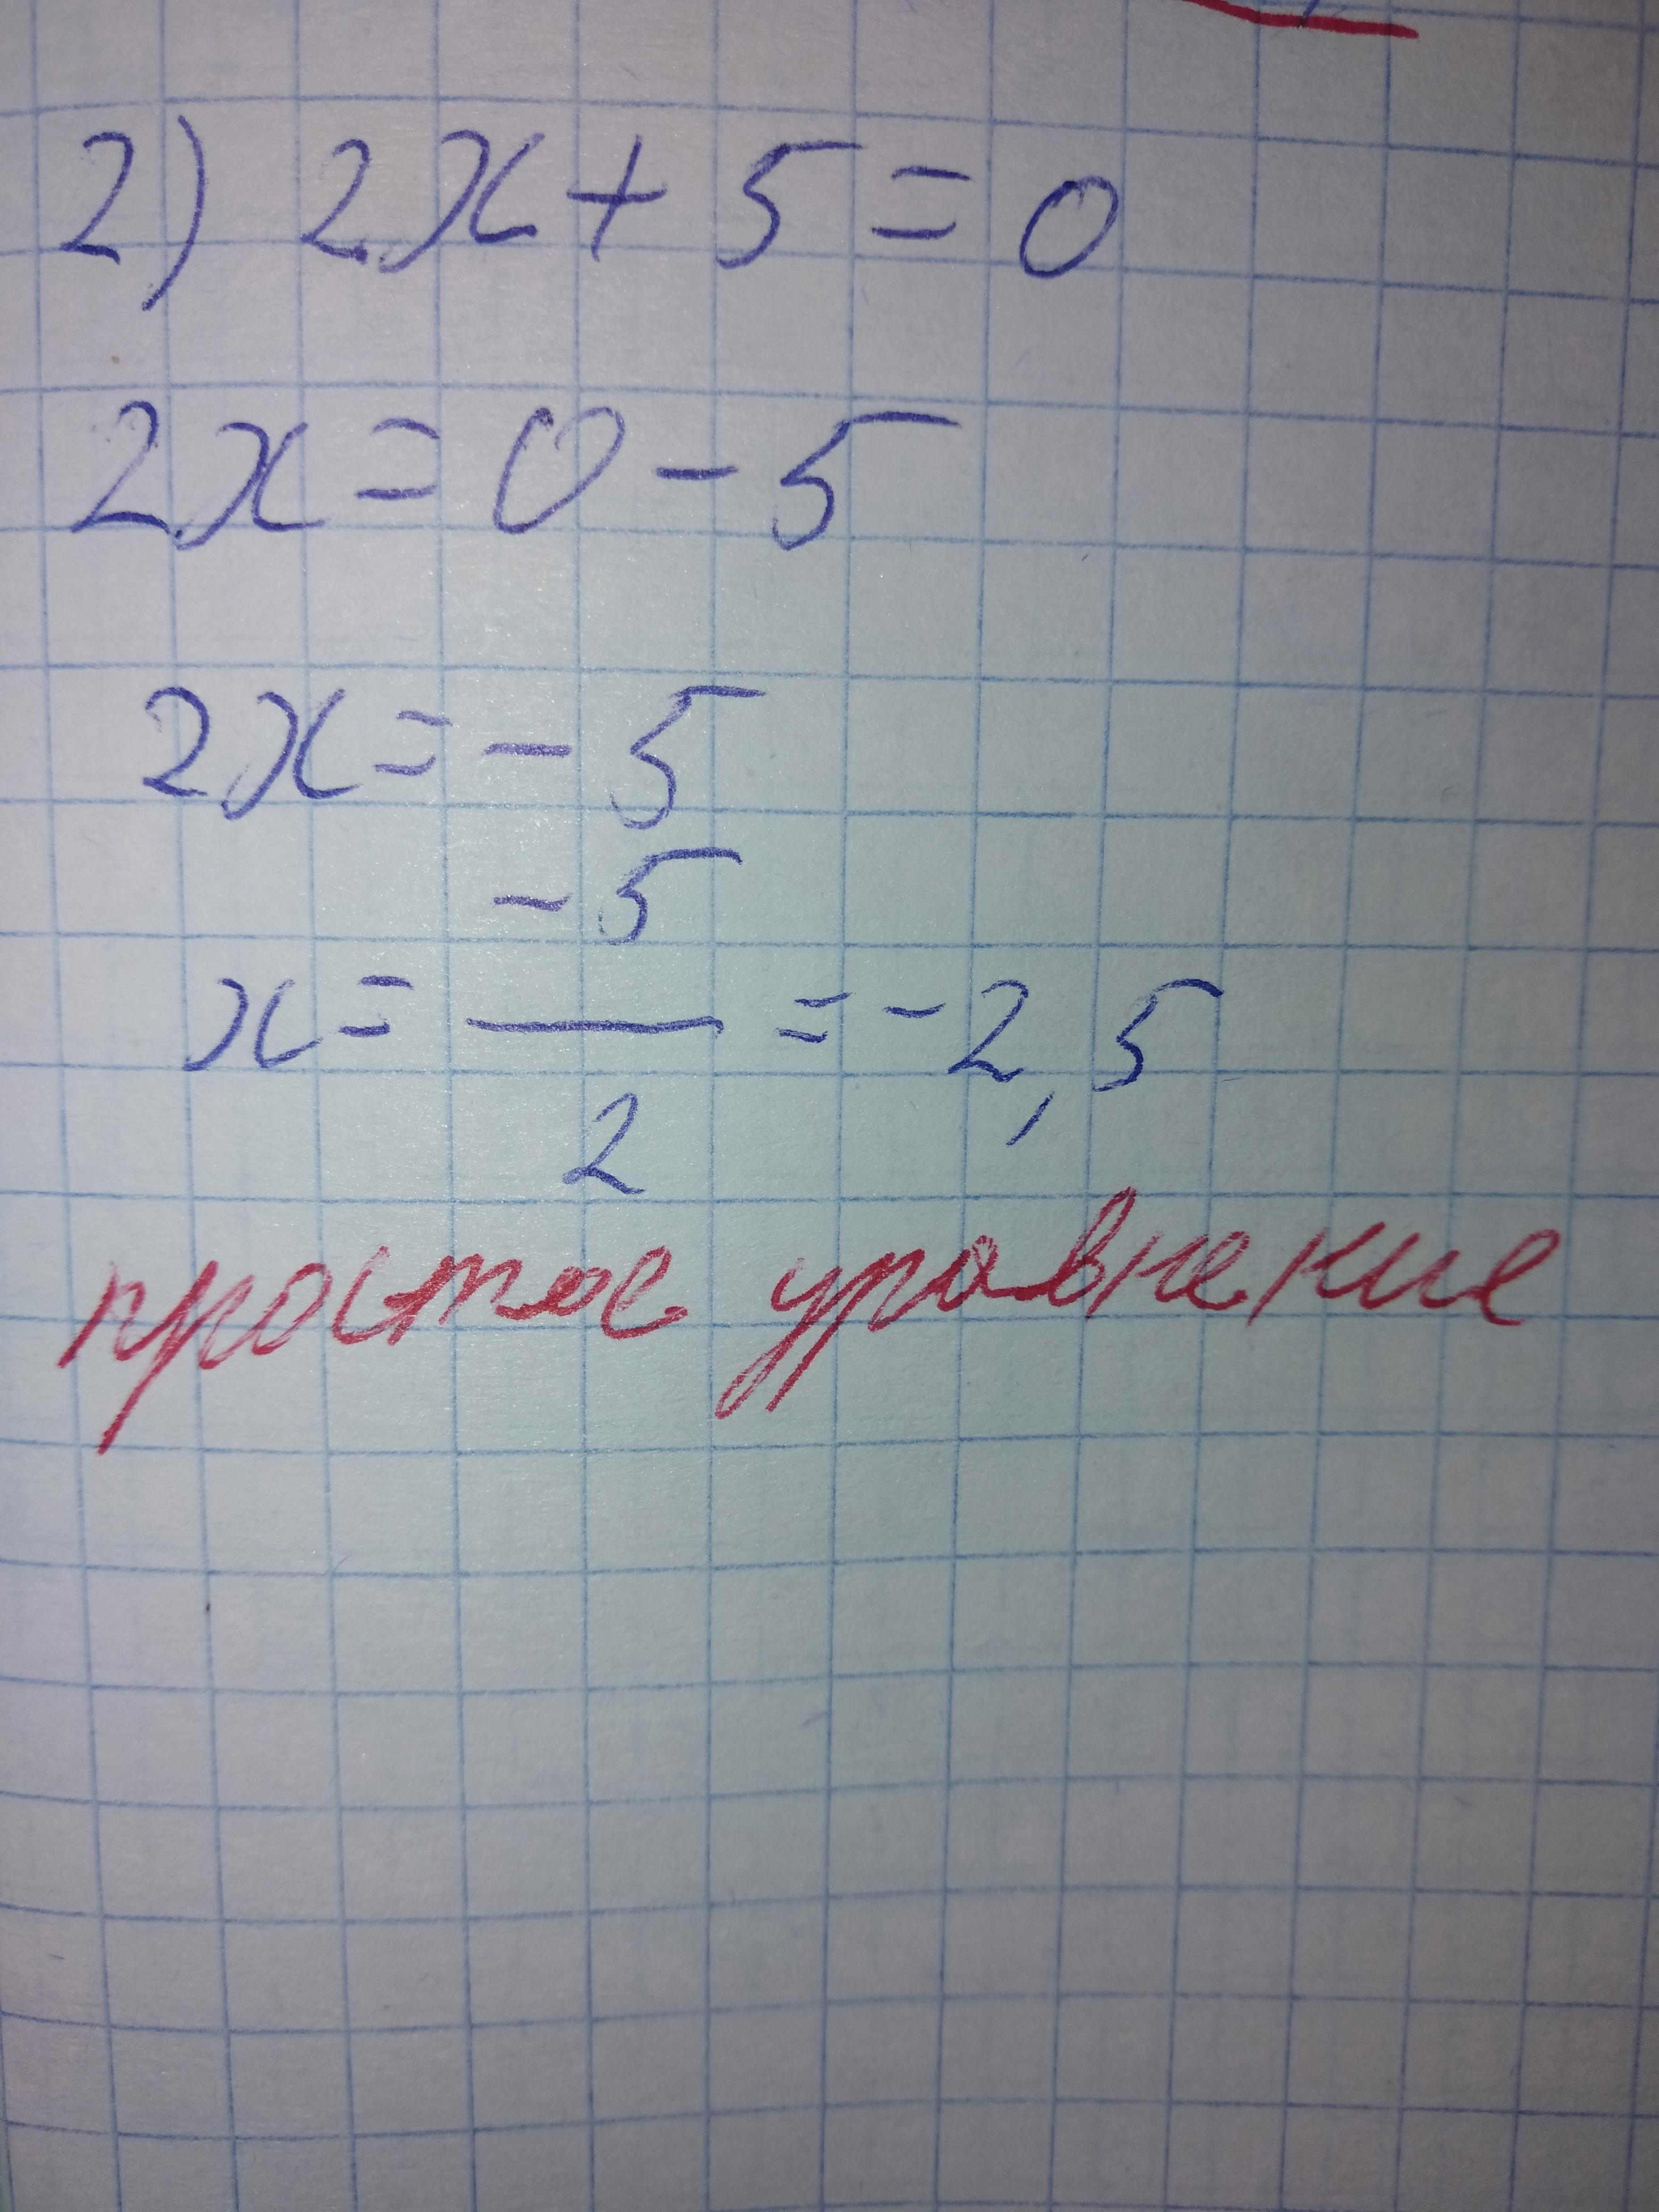 2) 2x + 5 = 0
2x = 0 - 5
2x = - 5
x = -5/2 = -2,5
простое уравнение